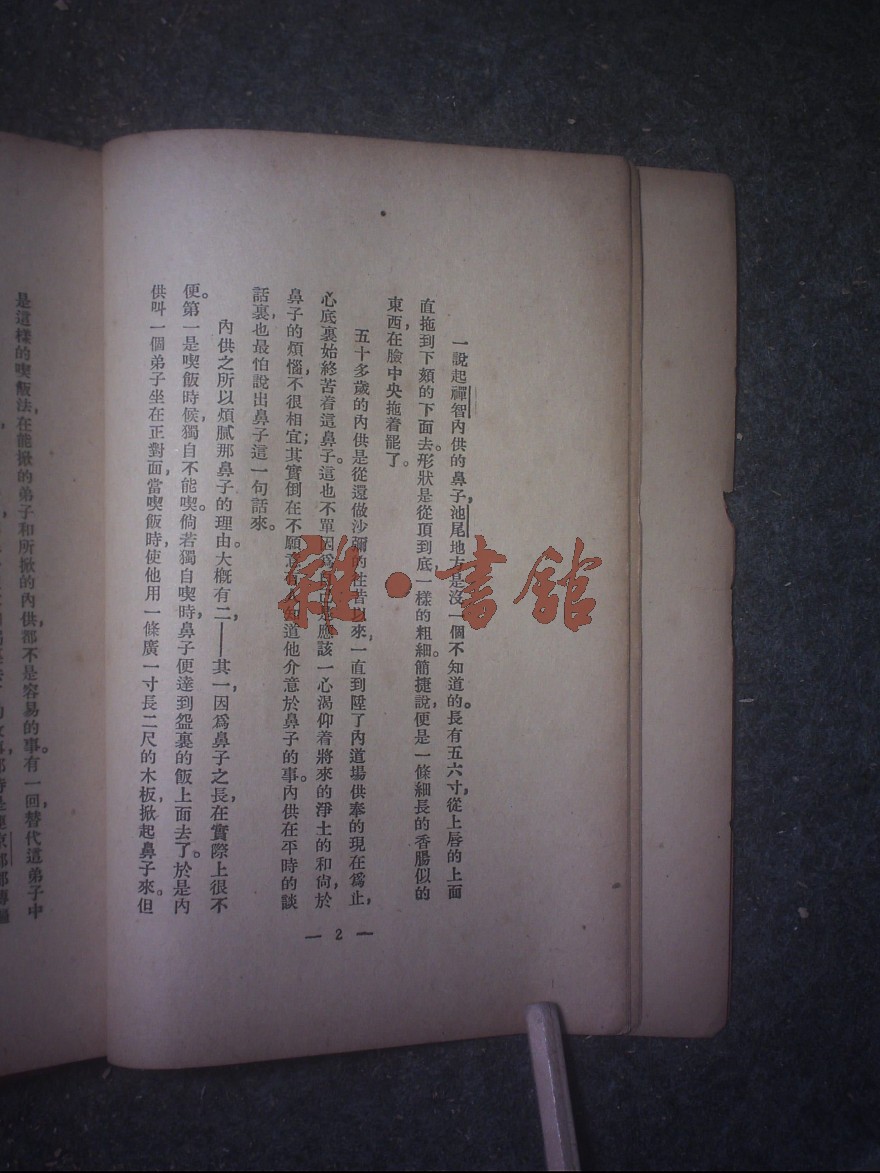 一說起禪智內供的鼻子，池尾地方是沒一個不知道的。長有五六寸，從上唇的上面
直拖到下頦的下面去。形狀是從頂到底，一樣的粗細。簡捷說，便是一條細長的香腸似的
東西，在臉中央拖着罷了。
五十多歲的內供是從還做沙彌的往昔以來，一直到陞了內道場供奉的現在爲止，
心底裏始終苦着這鼻子。這也不單因爲自己是應該一心渴仰着將來的淨土的和尙，於
鼻子的煩惱，不很相宜；其實倒在不願意有人知道他介意於鼻子的事。內供在平時的談
話裏，也最怕說出鼻子這一句話來。
內供之所以煩膩那鼻子的理由，大概有二，——其一，因爲鼻子之長，在實際上很不
便。第一是喫飯時候，獨自不能喫。倘若獨自喫時，鼻子便達到盌裏的飯上面去了。於是內
供叫一個弟子坐在正對面，當喫飯時，使他用一條廣一寸長二尺的木板，掀起鼻子來。但
— 2 —
是這樣的喫飯法，在能掀的弟子和所掀的內供，都不是容易的事。有一回，替代這弟子中
雜·書館